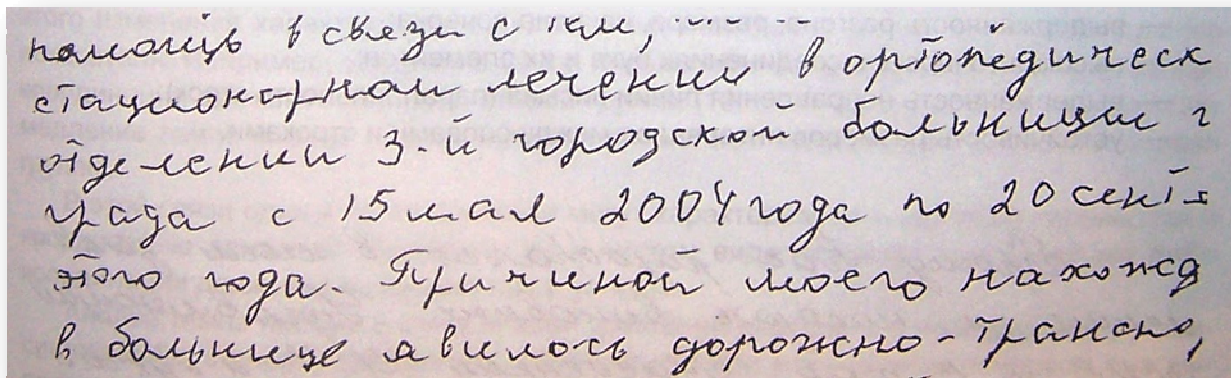 помощь в связи с тем,
стационарном лечении в ортопедическ
отделении 3-й городской больницы г
града с 15 мая 2004 года по 20 сентя
этого года. Причиной моего нахожд
в больнице явилось дорожно-транспо